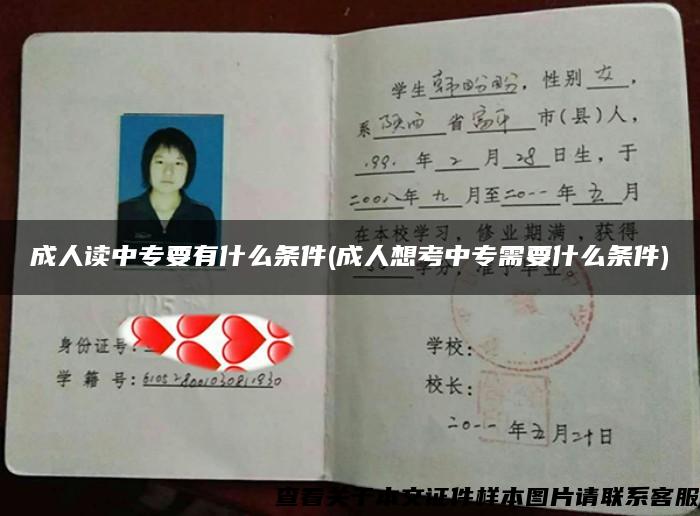 学生韩盼盼，性别女，
系陕西省富平市(县)人，
1991年2月28日生，于
二00八年九月至二0一一年五月
在本校学习，修业期满，获得
学分，准予毕业。
成人读中专要有什么条件(成人想考中专需要什么条件)
身份证号：
学籍号：
学校：
校长：
二0一一年五月二十日
查看关于本文证件样本图片请联系客服